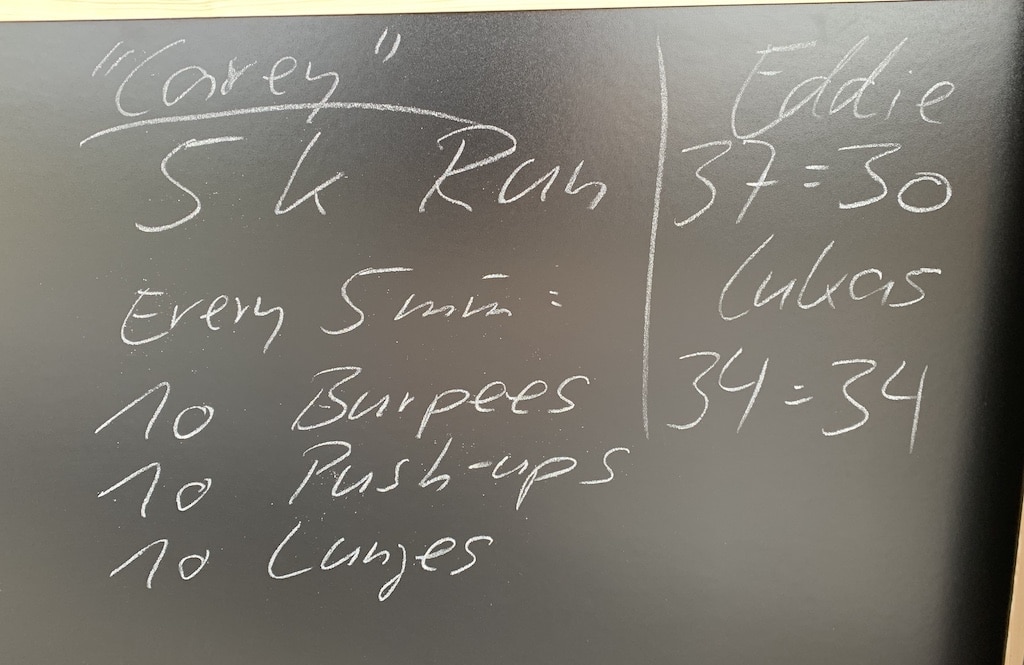 "Carey"
5k Run
Every 5 min:
10 Burpees
10 Push-ups
10 Lunges
Eddie
37:30
Lukas
34:34